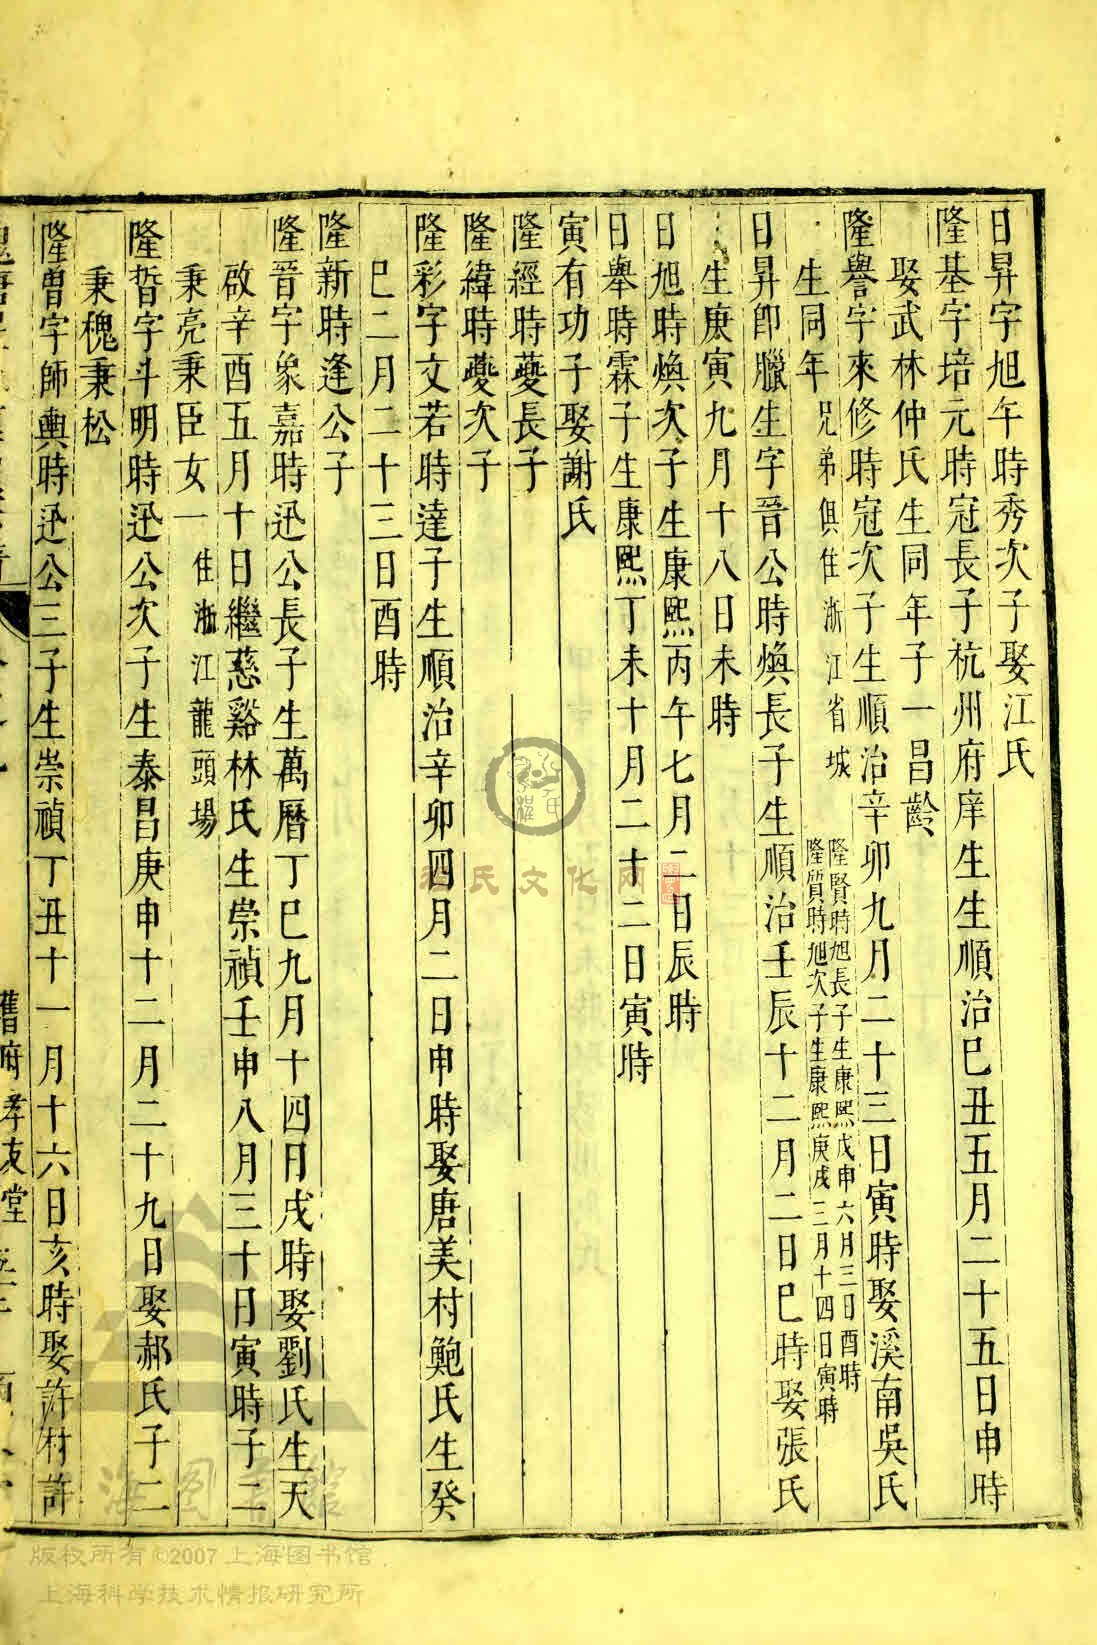 日昇字旭午時秀次子娶江氏
隆基字培元時冠長子杭州府庠生生順治己丑五月二十五日申時
娶武林仲氏生同年子一昌齡
隆譽字來修時冠次子生順治辛卯九月二十三日寅時娶溪南吳氏
生同年兄弟俱住浙江省城
隆賢時旭長子生康熙戊申六月三日酉時
隆質時旭次子生康熙庚戌三月十四日寅時
日昇卽臘生字晉公時煥長子生順治壬辰十二月二日巳時娶張氏
生庚寅九月十八日未時
日旭時煥次子生康熙丙午七月二日辰時
日舉時霖子生康熙丁未十月二十二日寅時
寅有功子娶謝氏
隆經時夔長子
隆緯時夔次子
隆彩字文若時達子生順治辛卯四月二日申時娶唐美村鮑氏生癸
巳二月二十三日酉時
隆新時逢公子
隆晉字象嘉時迅公長子生萬曆丁巳九月十四日戌時娶劉氏生天
啟辛酉五月十日繼慈谿林氏生崇禎壬申八月三十日寅時子二
秉亮秉臣女一住浙江龍頭場
隆晳字斗明時迅公次子生泰昌庚申十二月二十九日娶郝氏子二
秉槐秉松
隆曾字師輿時迅公三子生崇禎丁丑十一月十六日亥時娶許村許
舊府孝友堂
程氏文化网
海图书馆
版权所有©2007上海图书馆
上海科学技术情报研究所